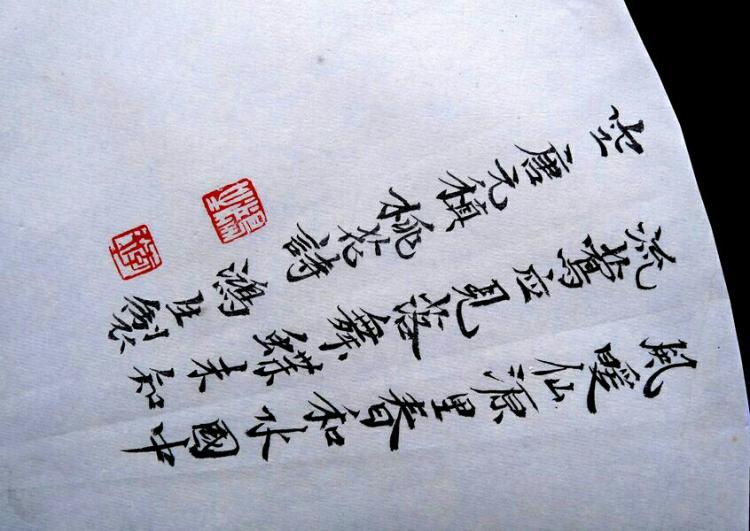 風暖仙源里春和水國中
流鶯应見落舞蝶未知
空 唐元稹桃花詩 鴻生製